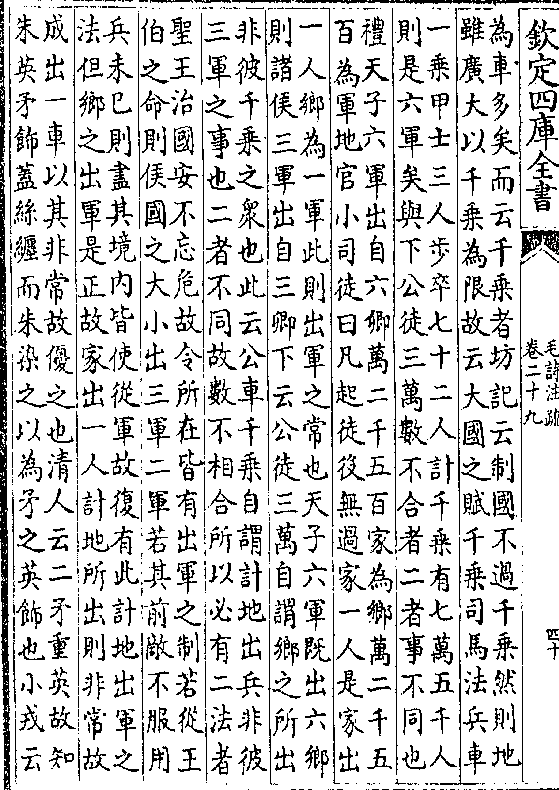 欽定四庫全書
毛詩注疏
卷二十九
四十
為車多矣而云千乘者坊記云制國不過千乘然則地
雖廣大以千乘為限故云大國之賦千乘司馬法兵車
一乘甲士三人步卒七十二人計千乘有七萬五千人
則是六軍矣與下公徒三萬數不合者二者事不同也
禮天子六軍出自六鄉萬二千五百家為鄉萬二千五
百為軍地官小司徒曰凡起徒役無過家一人是家出
一人鄉為一軍此則出軍之常也天子六軍既出六鄉
則諸侯三軍出自三鄉下云公徒三萬自謂鄉之所出
非彼千乘之衆也此云公車千乘自謂計地出兵非彼
三軍之事也二者不同故數不相合所以必有二法者
聖王治國安不忘危故令所在皆有出軍之制若從王
伯之命則侯國之大小出三軍二軍若其前敵不服用
兵未已則盡其境內皆使從軍故復有此計地出軍之
法但鄉之出軍是正故家出一人計地所出則非常故
成出一車以其非常故優之也清人云二矛重英故知
朱英矛飾蓋絲纏而朱染之以為矛之英飾也小戎云